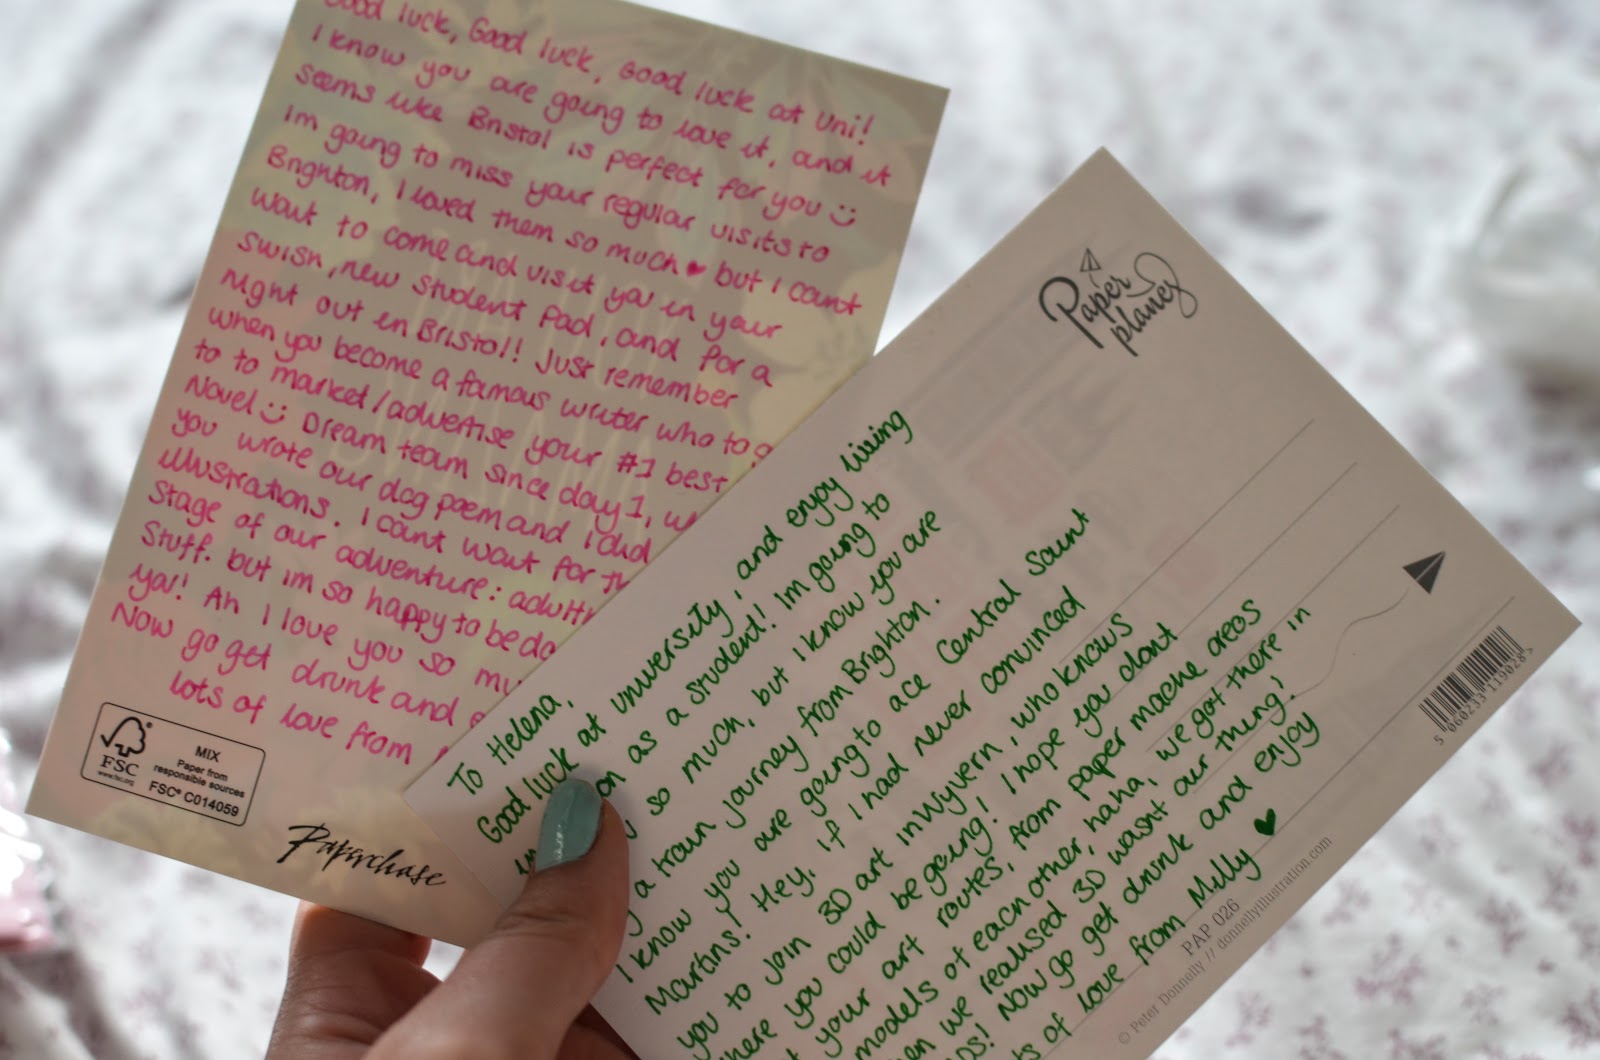 Good luck, Good luck, Good luck at Uni!
I know you are going to love it, and it
seems like Bristol is perfect for you :)
Im going to miss your regular visits to
Brighton, I loved them so much ♥ but I cant
wait to come and visit you in your
swish, new student pad, and for a
night out in Bristol! Just remember
when you become a famous writer who to
to to market/advertise your #1 best
Novel :) Dream team since day 1,
you wrote our dog poem and I did
illustrations. I cant wait for
stage of our adventure:
stuff. but im so happy to be
ya! Ah I love you so
Now go get drunk and
lots of love from
MIX
Paper from
responsible sources
FSC® C014059
FSC
www.fsc.org
Paperchase
Paper
planes
To Helena,
Good luck at university, and enjoy living
as a student! Im going to
so much, but I know you are
a train journey from Brighton.
I know you are going to ace Central Saint
Martins! Hey, if I had never convinced
you to join 3D art in Wyvern, who knows
where you could be going! I hope you dont
your art routes, from paper mache areos
models of each other, haha, we got there in
we realised 3D wasnt our thing!
Now go get drunk and enjoy
of love from Milly ♥
5 060233 119028
PAP 026
© Peter Donnelly // donnellyillustration.com